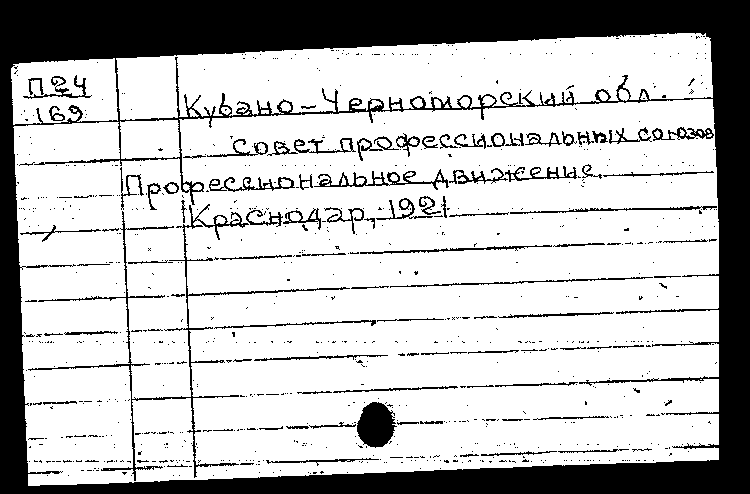 П24
169
Кубано-Черноморский обл.
совет профессиональных союзов
Профессиональное движение.
Краснодар, 1921